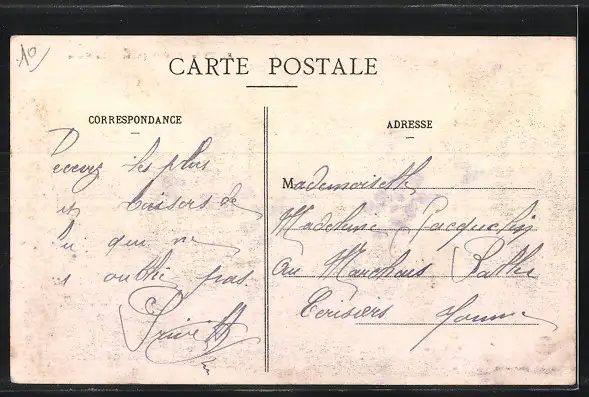 10
CARTE POSTALE
CORRESPONDANCE
ADRESSE
Recevez les plus
baisers de
qui ne
oublie pas
Mademoiselle
Madeleine Jacquelin
au Marchais
Cerisiers Yonne